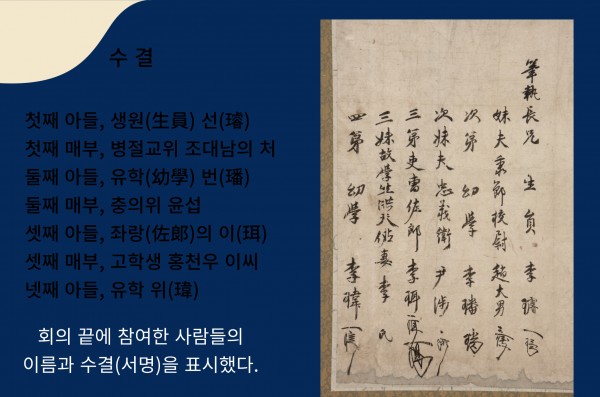 수 결
첫째 아들, 생원(生員) 선(璿)
첫째 매부, 병절교위 조대남의 처
둘째 아들, 유학(幼學) 번(璠)
둘째 매부, 충의위 윤섭
셋째 아들, 좌랑(佐郎)의 이(珥)
셋째 매부, 고학생 홍천우 이씨
넷째 아들, 유학 위(瑋)
회의 끝에 참여한 사람들의
이름과 수결(서명)을 표시했다.
筆執長兄 生員 李璿
妹夫秉節校尉 趙大男
次弟 幼學 李璠
次妹夫忠義衛 尹涉
三弟吏曹佐郎 李珥
三妹故學生洪天佑妻 李氏
四弟 幼學 李瑋